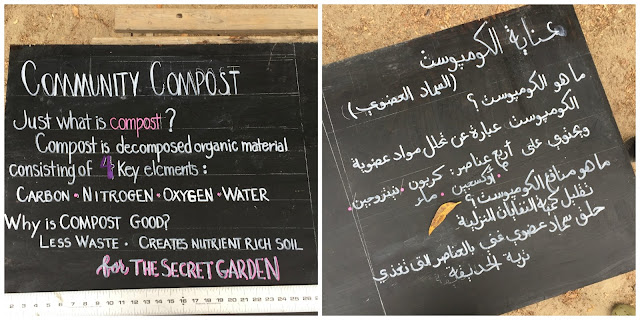 COMMUNITY COMPOST
Just what is compost?
Compost is decomposed organic material
consisting of 4 key elements:
CARBON • NITROGEN • OXYGEN • WATER
WHY IS COMPOST GOOD?
LESS WASTE • CREATES NUTRIENT RICH SOIL
for THE SECRET GARDEN
2 3 4 5 6 7 8 9 10 11 12 13 14 15 16 17 18 19 20 21 22 23 24 25 26
عناية الكومپوست
(السماد العضوي)
ما هو الكومپوست؟
الكومپوست عبارة عن تحلل مواد عضوية
ويحتوي على أربع عناصر: كربون • نيتروجين
• أوكسجين • ماء
ما هو منافع الكومپوست؟
تقليل كمية النفايات المنزلية
خلق سماد عضوي غني بالعناصر التي تغذي
تربة الحديقة